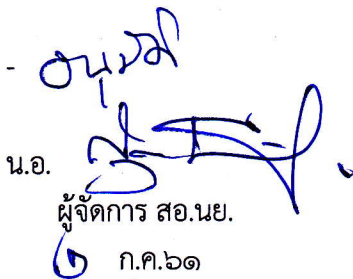 - อนุมัติ
น.อ.
ผู้จัดการ สอ.นย.
๒ ก.ค.๖๑